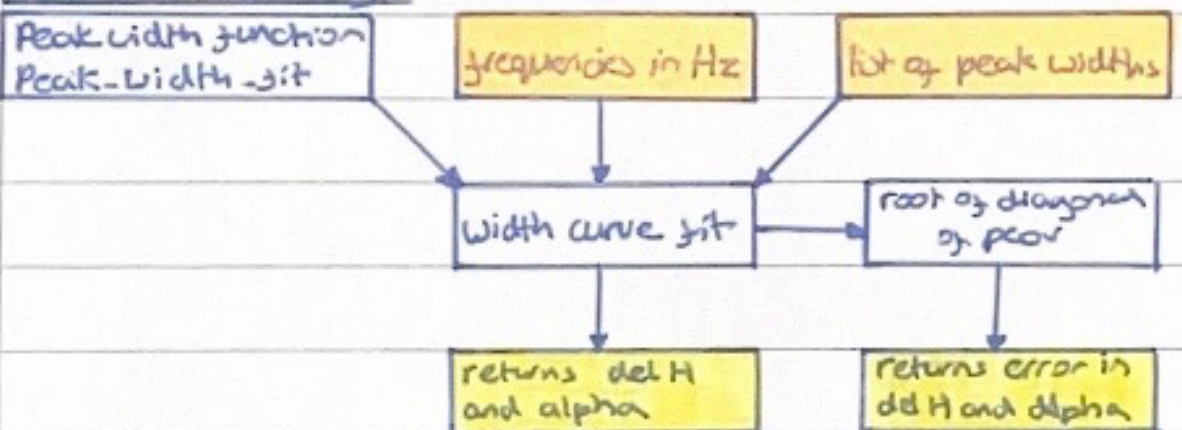 Peak width function
Peak-width-fit
frequencies in Hz
list of peak widths
width curve fit
root of diagonal
of pcov
returns del H
and alpha
returns error in
del H and alpha